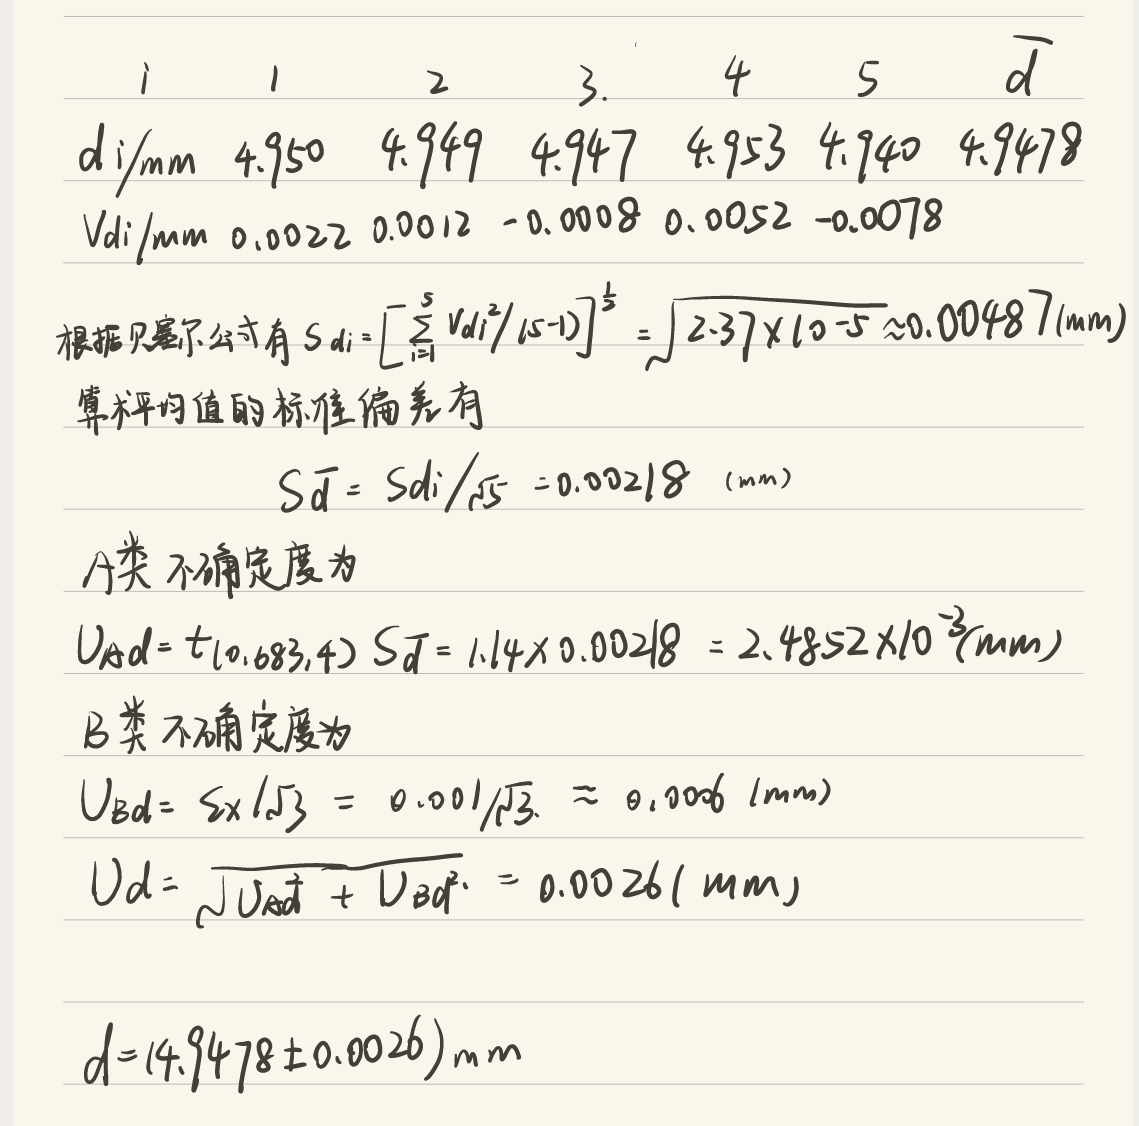 i 1 2 3. 4 5 d̅
di/mm 4.950 4.949 4.947 4.953 4.940 4.9478
Vdi/mm 0.0022 0.0012 -0.0008 0.0052 -0.0078
根据贝塞尔公式有 Sdi=[∑_{i=1}^{5} Vdi²/(5-1)]^{1/2} =√(2.37×10^-5) ≈0.00487(mm)
算术平均值的标准偏差有
Sd̅ = Sdi/√5 =0.00218 (mm)
A类不确定度为
UAd= t(0.683,4) Sd̅ = 1.14×0.00218 = 2.4852×10^-3(mm)
B类不确定度为
UBd= εx/√3 = 0.001/√3. ≈ 0.0006 (mm)
Ud= √(UAd² + UBd²) = 0.0026(mm)
d=(4.9478±0.0026)mm